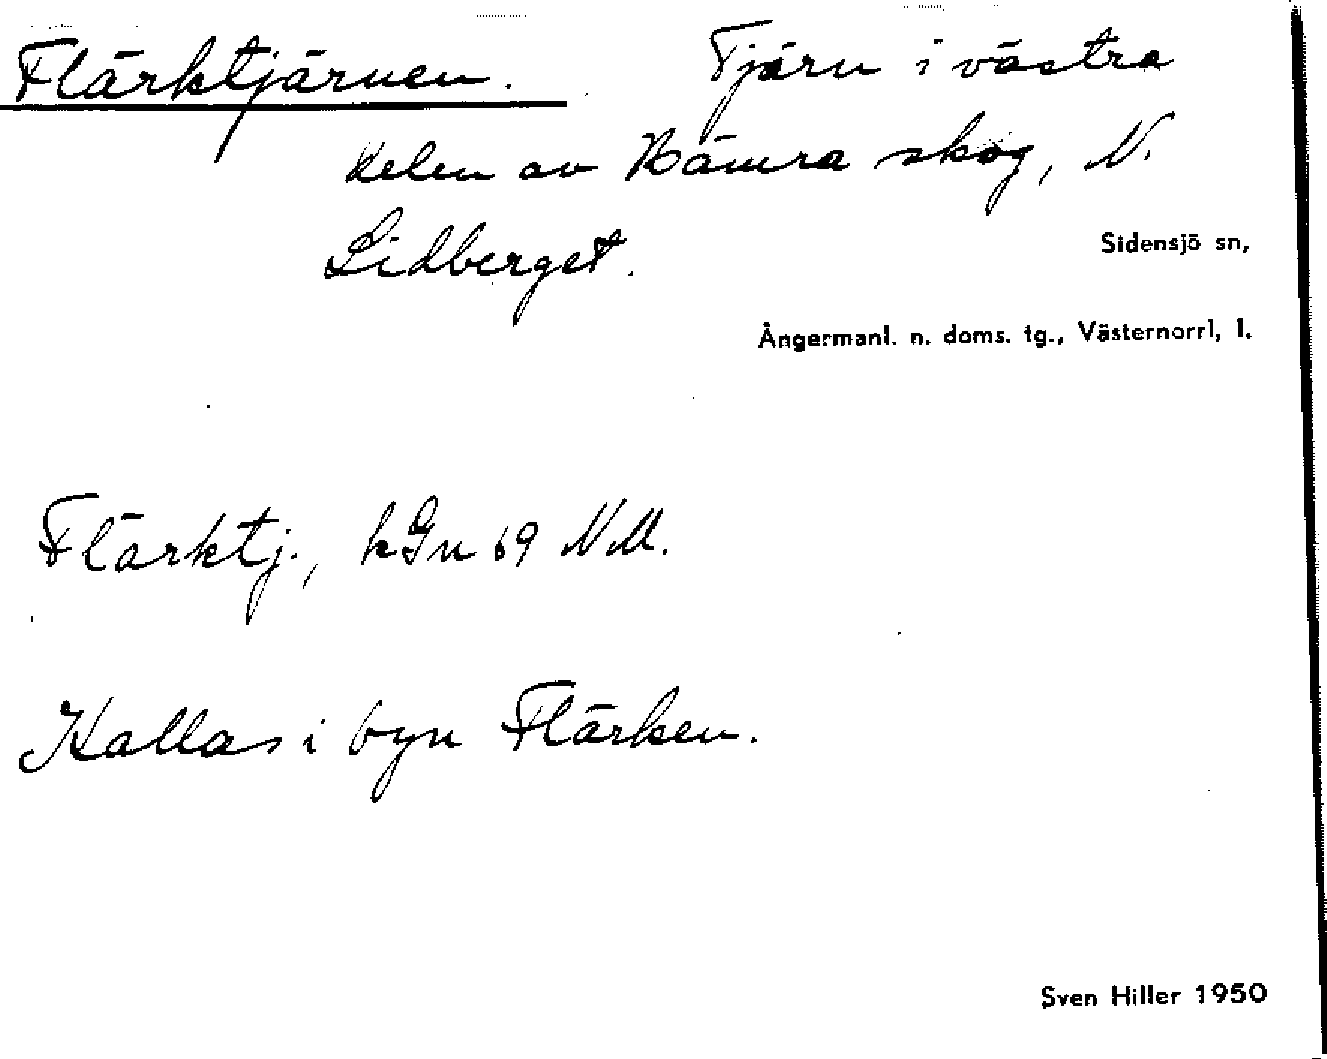 Flärktjärnen. Tjärn i västra
delen av Hämra skog, N.
Lidberget.
Sidensjö sn,
Ångermanl. n. doms. tg., Västernorrl, l.
Flärktj., kGn 69 NM.
Kallas i byn Flärken.
Sven Hiller 1950